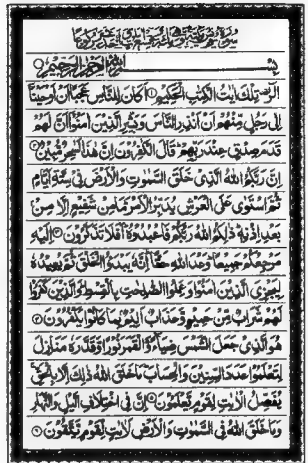 بسم الله الرحمن الرحيم
الر تلك ايت الكتب الحكيم ١ اكان للناس عجبا ان اوحينا
الى رجل منهم ان انذر الناس وبشر الذين امنوا ان لهم
قدم صدق عند ربهم قال الكفرون ان هذا لسحر مبين ٢
ان ربكم الله الذي خلق السموت والارض في ستة ايام
ثم استوى على العرش يدبر الامر ما من شفيع الا من
بعد اذنه ذلكم الله ربكم فاعبدوه افلا تذكرون ٣ اليه
مرجعكم جميعا وعد الله حقا انه يبدؤا الخلق ثم يعيده
ليجزي الذين امنوا وعملوا الصلحت بالقسط والذين كفروا
لهم شراب من حميم وعذاب اليم بما كانوا يكفرون ٤
هو الذي جعل الشمس ضياء والقمر نورا وقدره منازل
لتعلموا عدد السنين والحساب ما خلق الله ذلك الا بالحق
يفصل الايت لقوم يعلمون ٥ ان في اختلاف اليل والنهار
وما خلق الله في السموت والارض لايت لقوم يتقون ٦